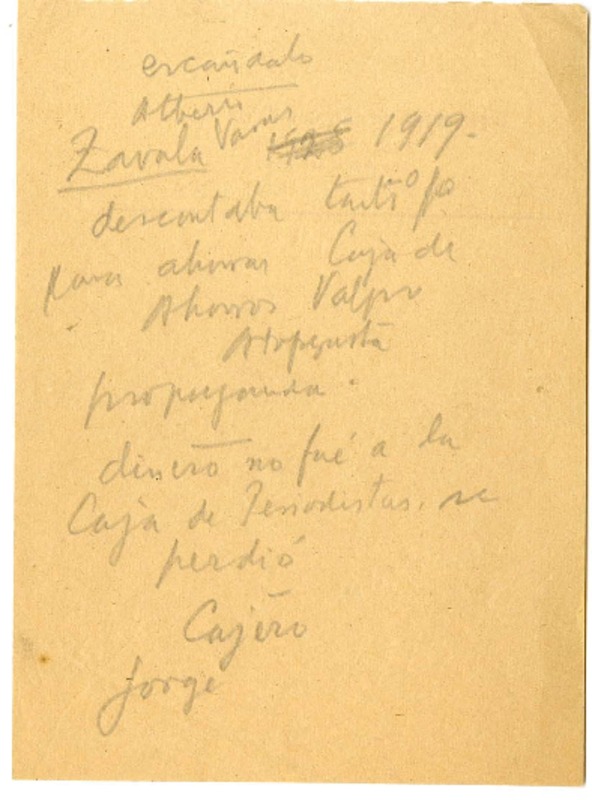 escándalo
Alberto
Zavala Varas 1919.
descontaba
para ahorrar Caja de
Ahorros Valpo
propaganda.
dinero no fué a la
Caja de Periodistas, se
perdió
Cajero
Jorge